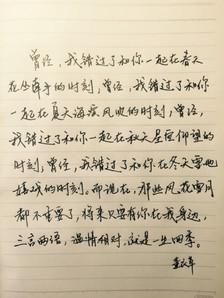 曾经，我错过了和你一起在春天
在丛牵手的时刻，曾经，我错过了和你
一起在夏天海滨风吹的时刻，曾经，
我错过了和你一起在秋天星空仰望的
时刻，曾经，我错过了和你在冬天雪地
嬉戏的时刻。而现在，那些风花雪月
都不重要了，将来只要有你在我身边，
三言两语，温情相对，就是一生四季。